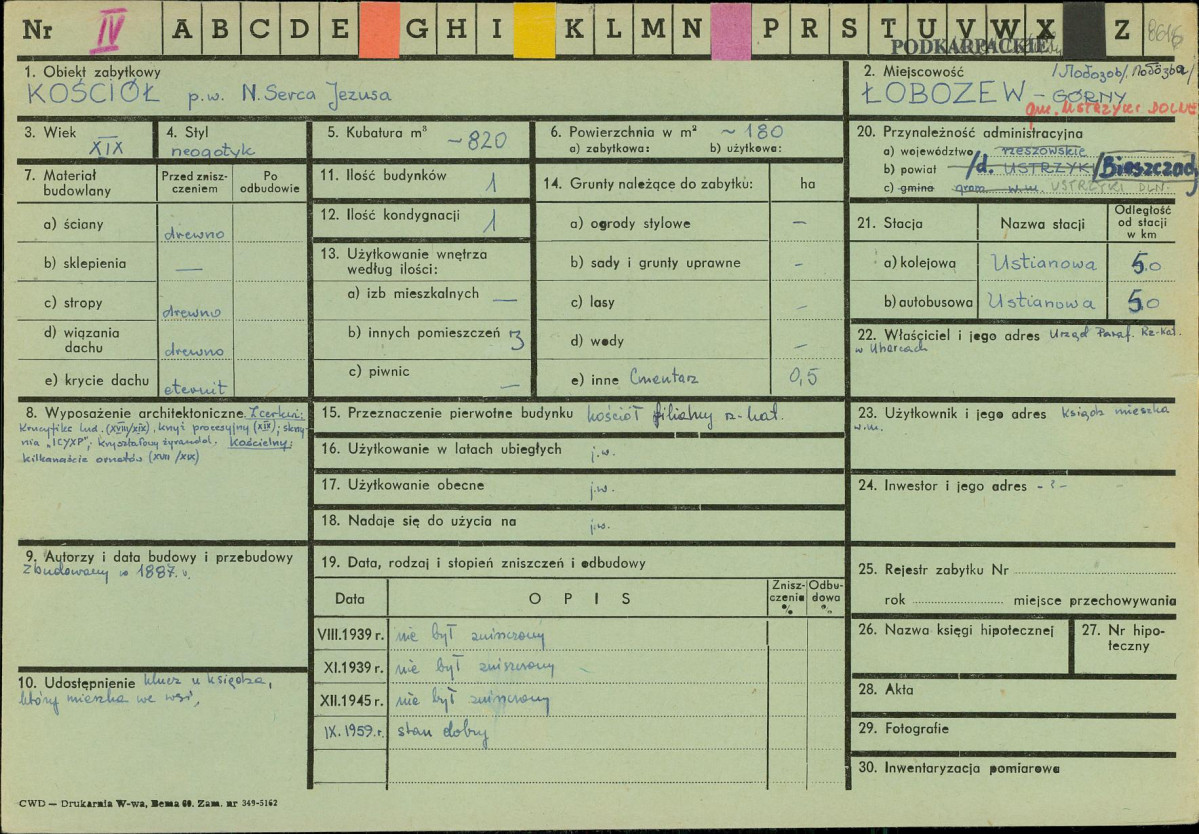 Nr IV A B C D E G H I K L M N P R S T U V W X Z 8616
PODKARPACKIE
1. Obiekt zabytkowy
KOŚCIÓŁ p.w. N. Serca Jezusa
2. Miejscowość /Лобозов/
ŁOBOZEW - GÓRNY
gm. USTRZYKI DOLNE
3. Wiek
XIX
4. Styl
neogotyk
5. Kubatura m³
~820
6. Powierzchnia w m² ~ 180
a) zabytkowa: b) użytkowa:
7. Materiał budowlany
Przed zniszczeniem
Po odbudowie
a) ściany drewno
b) sklepienia —
c) stropy drewno
d) wiązania dachu drewno
e) krycie dachu eternit
8. Wyposażenie architektoniczne Z cerkwi:
krucyfiks lud. (XVIII/XIX), krzyż procesyjny (XIX); skrzy
nia "ICYXP"; kryształowy żyrandol. Kościelny:
kilkanaście ornatów (XVII/XIX)
9. Autorzy i data budowy i przebudowy
Zbudowany w 1887 r.
10. Udostępnienie klucz u księdza,
który mieszka we wsi,
11. Ilość budynków 1
12. Ilość kondygnacji 1
13. Użytkowanie wnętrza według ilości:
a) izb mieszkalnych —
b) innych pomieszczeń 3
c) piwnic —
14. Grunty należące do zabytku: ha
a) ogrody stylowe —
b) sady i grunty uprawne —
c) lasy —
d) wody —
e) inne Cmentarz 0,5
15. Przeznaczenie pierwotne budynku kościół filialny rz-kat.
16. Użytkowanie w latach ubiegłych j.w.
17. Użytkowanie obecne j.w.
18. Nadaje się do użycia na j.w.
19. Data, rodzaj i stopień zniszczeń i odbudowy
Data OPIS Zniszczenie % Odbudowa %
VIII.1939 r. nie był zniszczony
XI.1939 r. nie był zniszczony
XII.1945 r. nie był zniszczony
IX.1959 r. stan dobry
20. Przynależność administracyjna
a) województwo rzeszowskie
b) powiat /d. USTRZYKI/ Bieszczady
c) gmina grom. w.m. USTRZYKI DLN.
21. Stacja Nazwa stacji Odległość od stacji w km
a) kolejowa Ustianowa 5.0
b) autobusowa Ustianowa 5.0
22. Właściciel i jego adres Urząd Paraf. Rz-kat.
w Uhercach
23. Użytkownik i jego adres ksiądz mieszka
w.m.
24. Inwestor i jego adres - ? -
25. Rejestr zabytku Nr
rok miejsce przechowywania
26. Nazwa księgi hipotecznej
27. Nr hipoteczny
28. Akta
29. Fotografie
30. Inwentaryzacja pomiarowa
CWD — Drukarnia W-wa, Bema 60. Zam. nr 349-5162